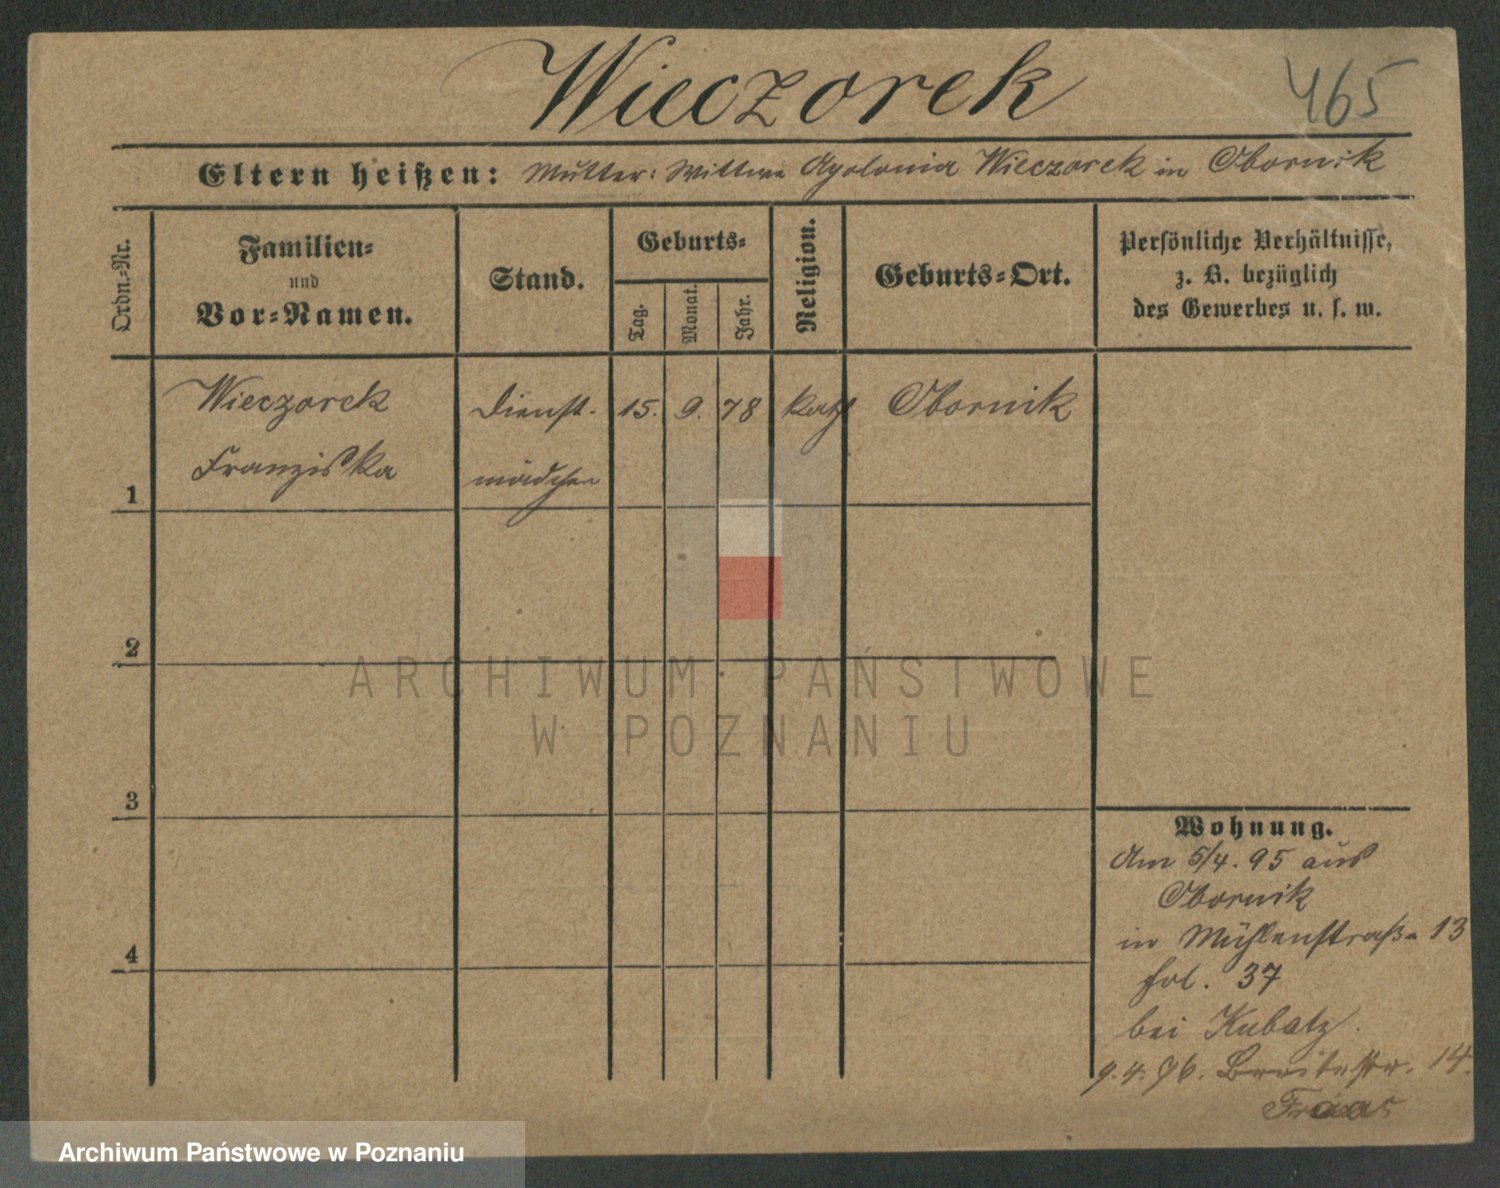 Wieczorek
465
Eltern heißen: Mutter: Wittwe Apolonia Wieczorek in Obornik
Ordn.-Nr.
Familien-
und
Vor-Namen.
Stand.
Geburts-
Tag.
Monat.
Jahr.
Religion.
Geburts-Ort.
Persönliche Verhältnisse,
z. B. bezüglich
des Gewerbes u. s. w.
Wieczorek Dienst- 15. 9. 78 kath Obornik
Franziska mädchen
1
2
3
4
Wohnung.
Am 5/4. 95 aus
Obornik
in Mühlenstraße 13
fol. 37
bei Kubatz.
9.4.96. Breitestr. 14.
ARCHIWUM PAŃSTWOWE
W POZNANIU
Archiwum Państwowe w Poznaniu